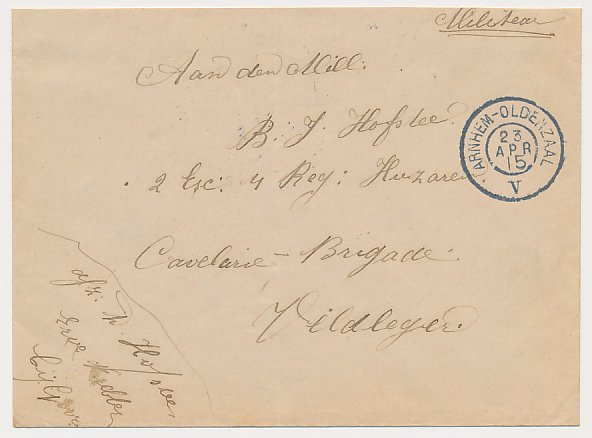 Militair
Aan den Mill:
B. J. Hofstee.
2 Esc: 4 Reg: Huzaren
Cavelarie - Brigade.
Veldleger.
ARNHEM-OLDENZAAL
23
APR
15
V
afz. H. Hofstee
Erve
bij